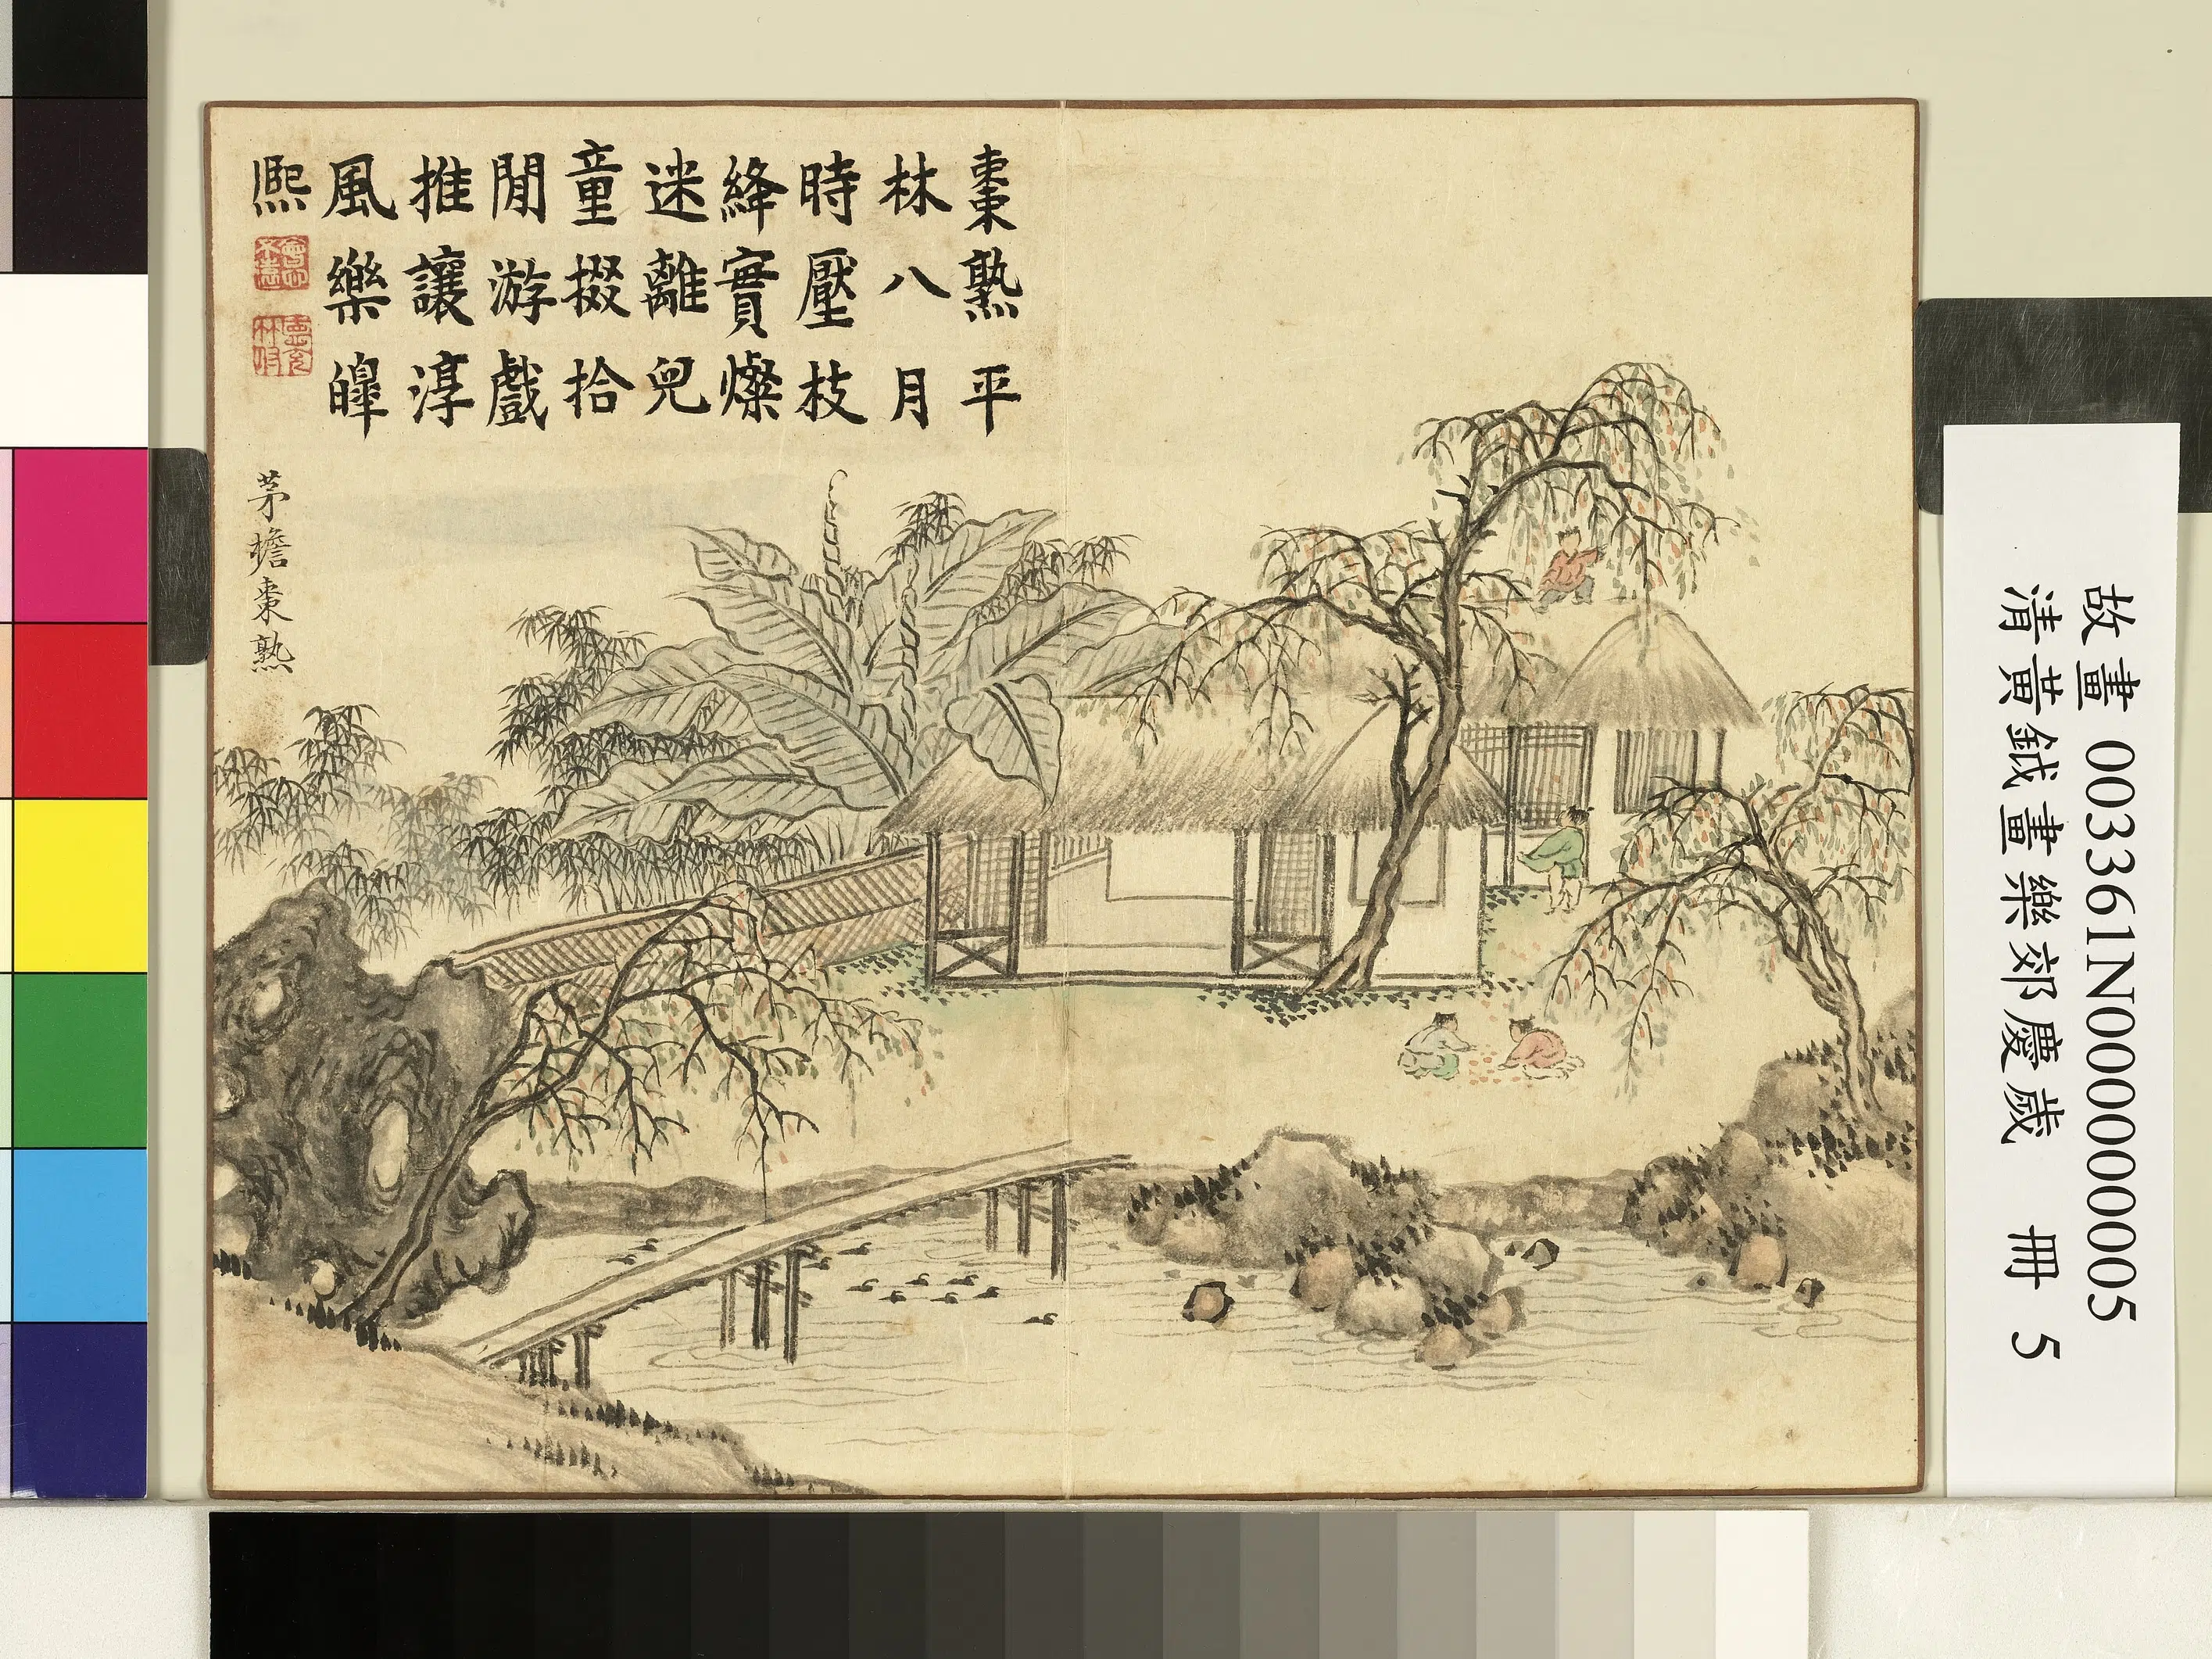 棗熟平
林八月
時壓枝
絳實燦
迷離兒
童掇拾
閒游戲
推讓淳
風樂皞
熙
會心不遠
茅檐棗熟
故畫 003361N000000005
清黃鉞畫樂郊慶歲 冊 5